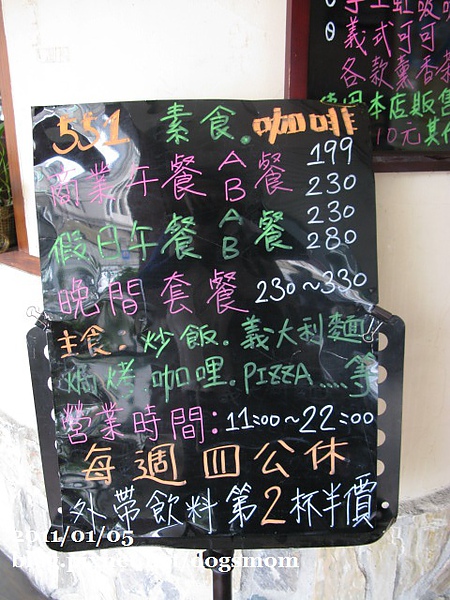 551 素食.咖啡
商業午餐 A餐 199
B 230
假日午餐 A餐 230
B 280
晚間套餐 230~330
主食.炒飯.義大利麵
焗烤.咖哩.PIZZA.....等
營業時間:11:00~22:00
每週四公休
外帶飲料第2杯半價
義式可可
各款薰香茶
本店販售
10元其
2011/01/05